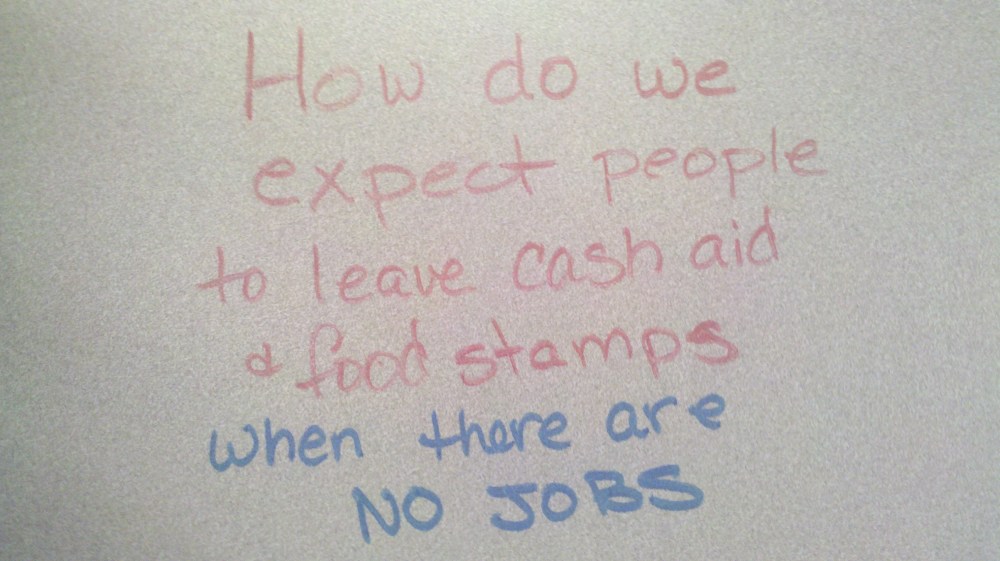 How do we
expect people
to leave cash aid
& food stamps
when there are
NO JOBS